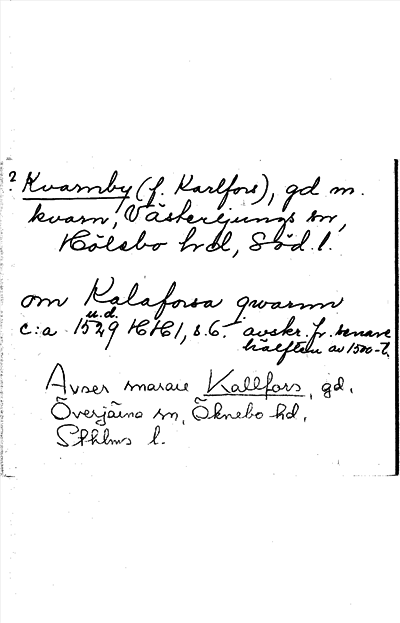 ? Kvarnby (f. Karlfors), gd m.
kvarn, Västerljungs sn,
Hölebo hd, Söd. l.
om Kalaforsa qwarnn
u.d.
c:a 1529 HH1, s. 6. avskr. fr. senare
hälften av 1500-t.
Avser snarare Kallfors, gd,
Överjärna sn, Öknebo hd,
Sthlms l.